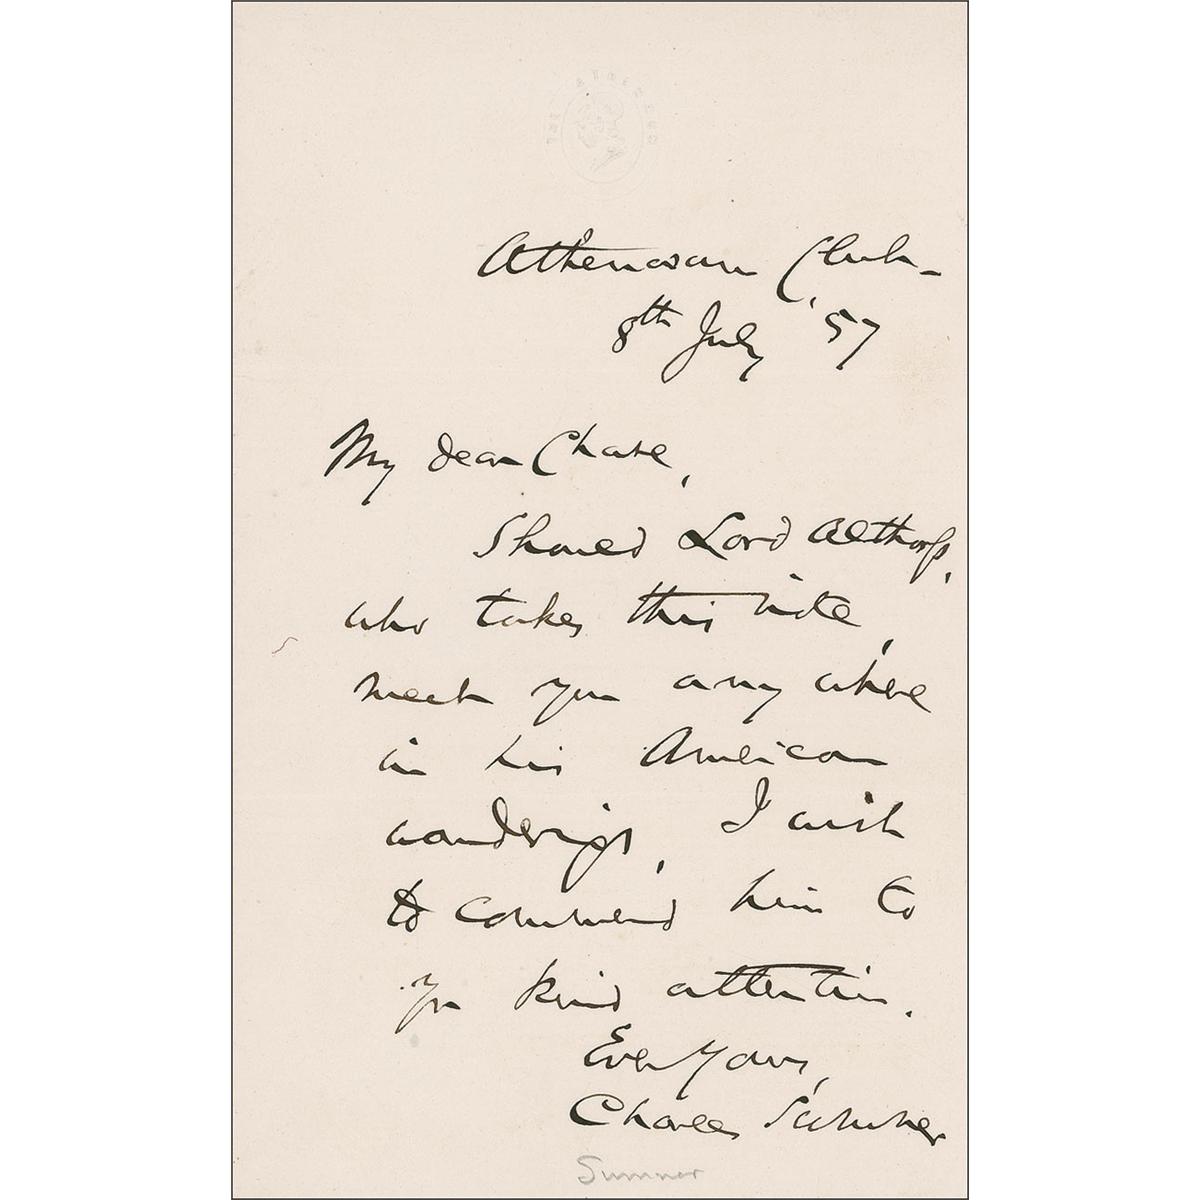 THE ATHENÆUM
Athenaeum Club -
8th July '57
My dear Chase,
Should Lord Althorp,
who takes this note,
meet you any where
in his American
wanderings, I wish
to commend him to
yr kind attention.
Ever Yours,
Charles Sumner
Sumner